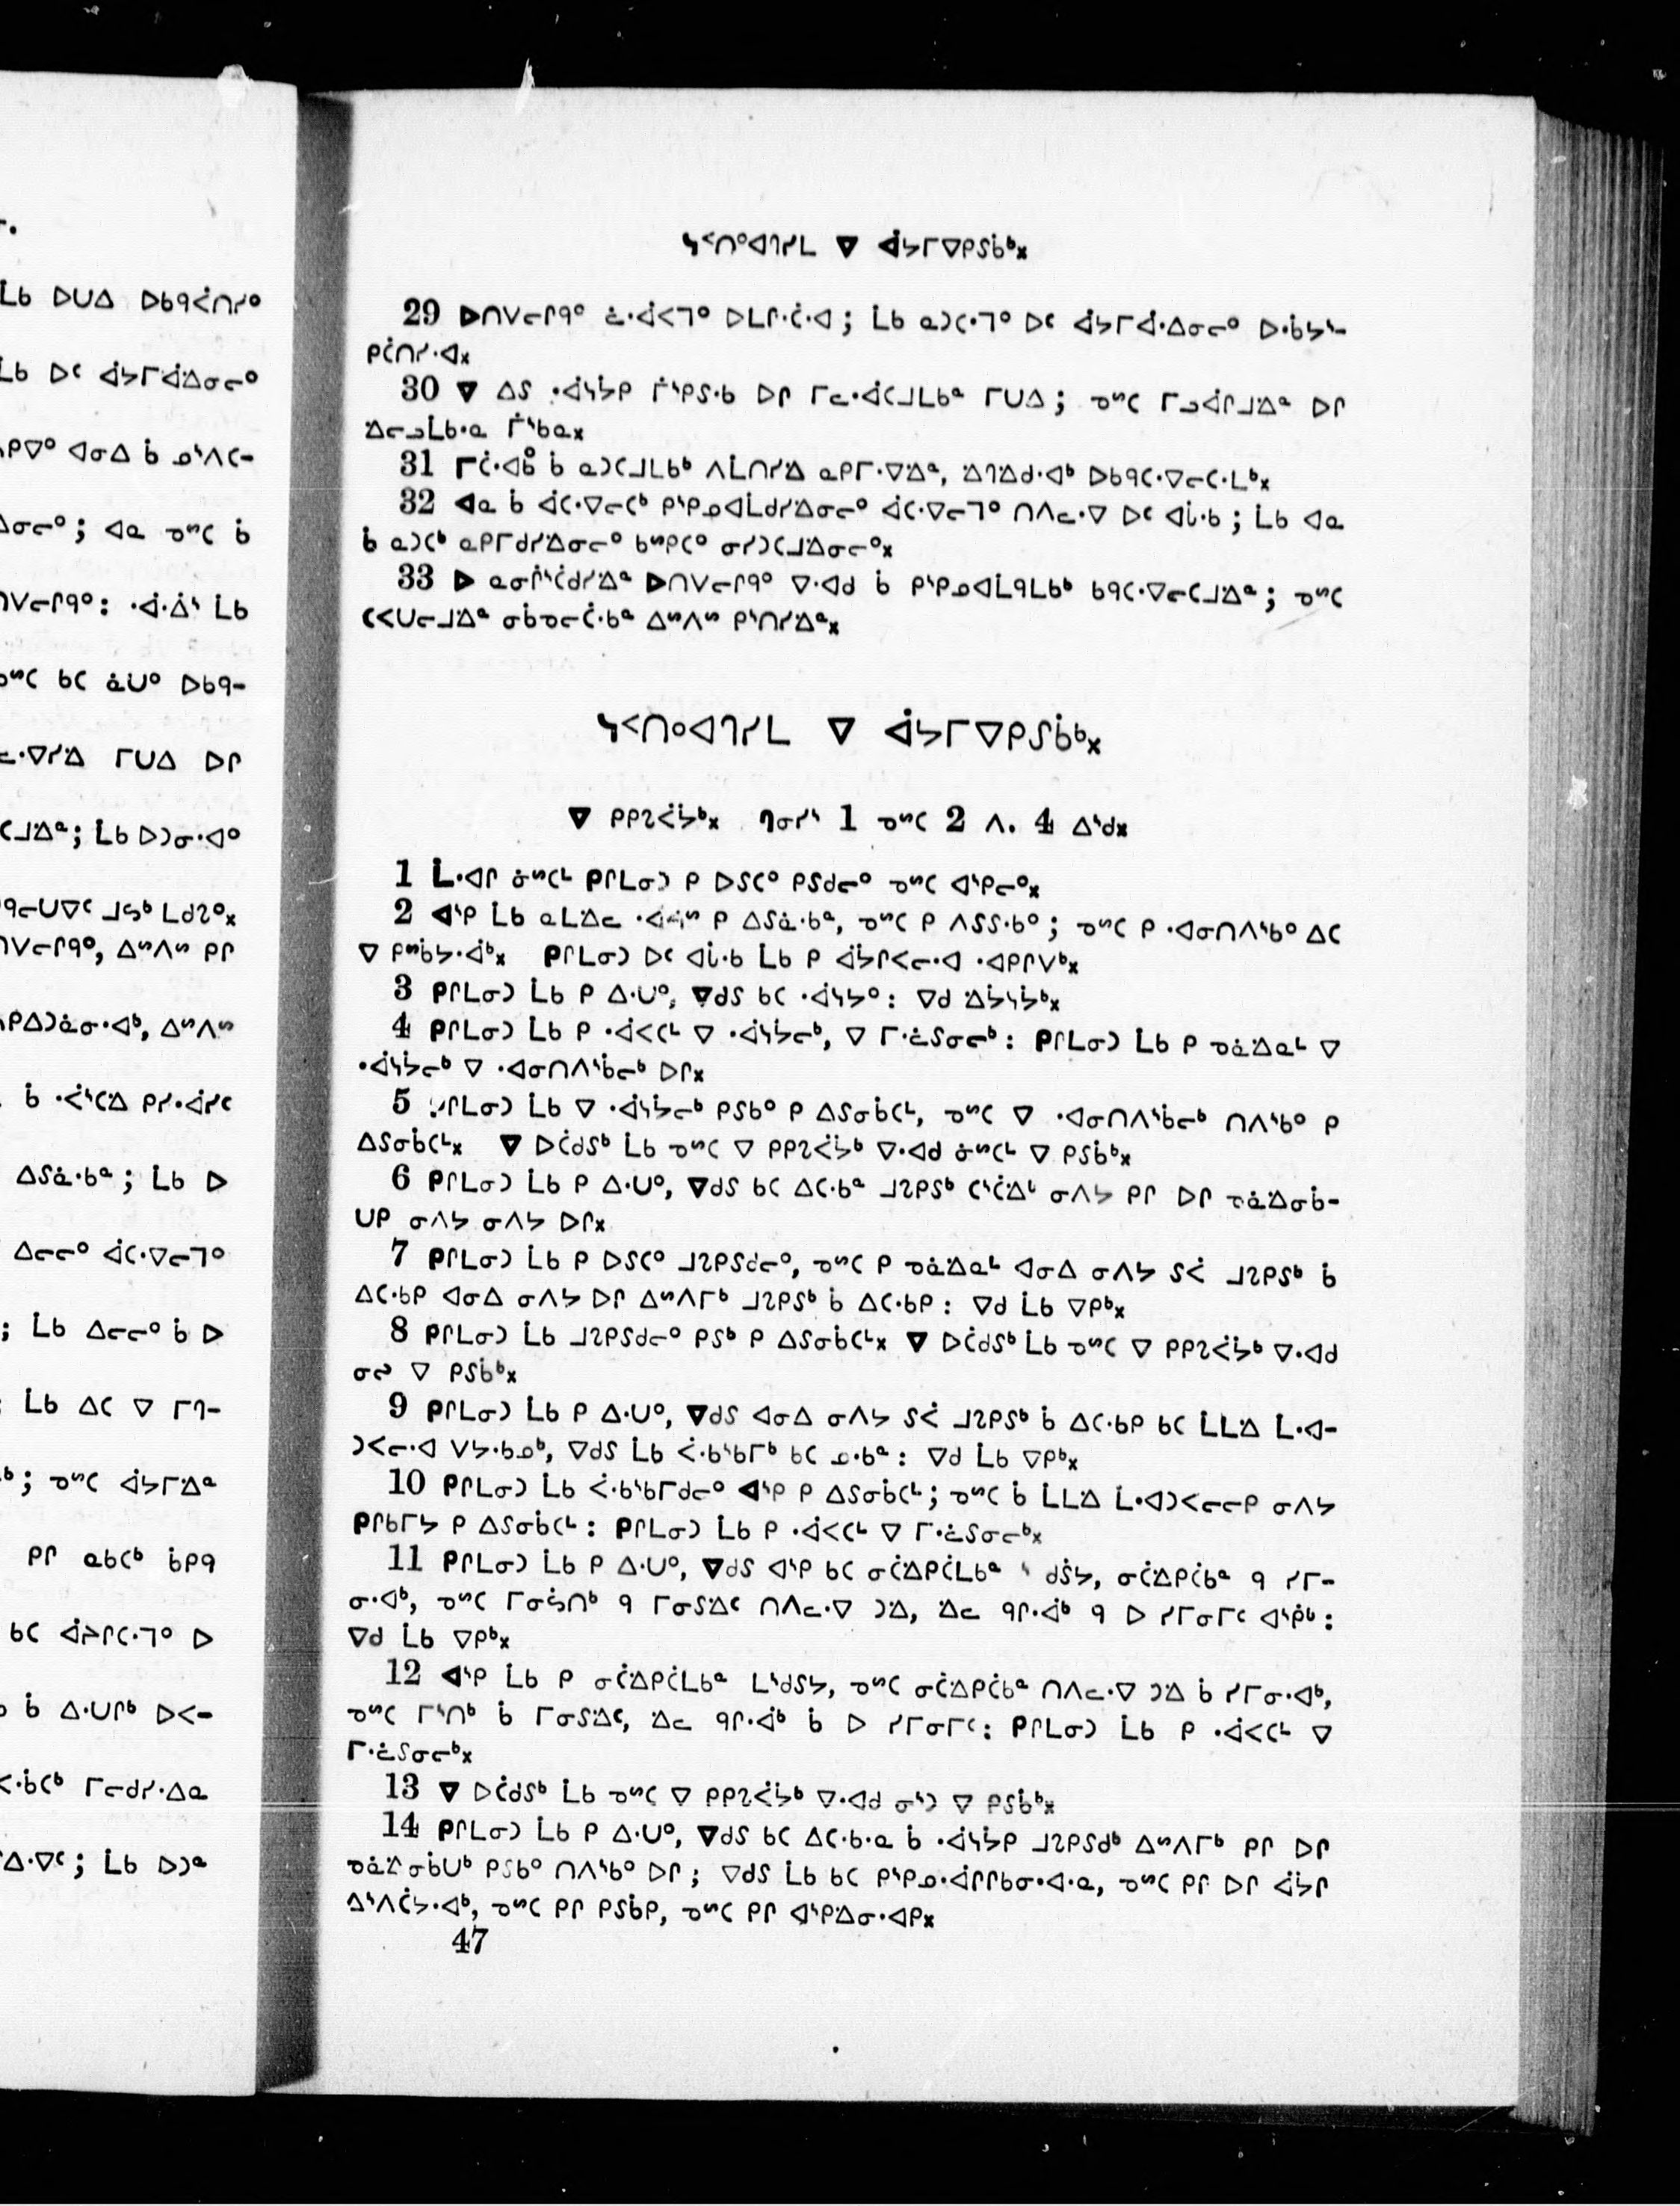 ᓴᑉᑎᐤᐊᒉᓯᒪ ᐁ ᐋᔭᒥᐁᑭᔑᑳᒃ᙮
29 ᐅᑎᐯᓕᒋᑫᐤ ᓈᐧᐋᐸᒣᐤ ᐅᒪᒋᐧᑖᐧᐊ ; ᒫᑲ ᓇᑐᑕᐧᒣᐤ ᐅᑦ ᐋᔭᒥᐋᐧᐃᓂᓕᐤ ᐅᐧᑳᔭᔅ-
ᑭᑖᑎᓯᐧᐊ᙮
30 ᐁ ᐃᔑ ᐧᐋᓴᔮᑭ ᒦᔅᑭᔑᐧᑲ ᐅᒋ ᒥᓓᐧᐋᑕᒧᒪᑲᓐ ᒥᑌᐃ ; ᓀᔥᑕ ᒥᓗᐋᒋᒧᐃᐧᓐ ᐅᒋ
ᐃᐧᓕᓗᒫᑲᐧᓇ ᒦᔅᑲᓇ᙮
31 ᒥᑖᐧᐊᑳ ᑳ ᓇᑐᑕᒧᒪᑲᒃ ᐱᒫᑎᓯᐃᐧ ᓇᑭᒥᐧᐁᐃᐧᓐ, ᐃᐧᒉᐃᐧᑯᐧᐊᒃ ᐅᑲᑫᑕᐧᐁᓕᑕᐧᒪᒃ᙮
32 ᐊᓇ ᑳ ᐋᑕᐧᐁᓕᑕᒃ ᑭᔅᑭᓄᐊᒫᑯᓯᐃᐧᓂᓕᐤ ᐋᑕᐧᐁᓕᒣᐤ ᑎᐱᓓᐧᐁ ᐅᑦ ᐊᒑᐧᑲ ; ᒫᑲ ᐊᓇ
ᑳ ᓇᑐᑕᒃ ᓇᑭᒥᑯᓯᐃᐧᓂᓕᐤ ᑲᔥᑭᑕᐤ ᓂᓯᑐᑕᒧᐃᐧᓂᓕᐤ᙮
33 ᐅ ᓇᓂᒌᔅᑖᑯᓯᐃᐧᓐ ᐅᑎᐯᓕᒋᑫᐤ ᐁᐧᐊᑯ ᑳ ᑭᔅᑭᓄᐊᒫᑫᒪᑲᒃ ᑲᑫᑕᐧᐁᓕᑕᒧᐃᐧᓐ ; ᓀᔥᑕ
ᑕᐸᑌᓕᒧᐃᐧᓐ ᓂᑳᓀᓕᑖᐧᑲᓐ ᐃᔥᐱᔥ ᑭᔅᑎᓯᐃᐧᓐ᙮
ᓴᑉᑎᐤᐊᒉᓯᒪ ᐁ ᐋᔭᒥᐁᑭᔑᑳᒃ᙮
ᐁ ᑭᑭᔐᐹᔮᒃ᙮ ᒉᓂᓯᔅ 1 ᓀᔥᑕ 2 ᐱ. 4 ᐃᔅᑯ᙮
1 ᒫᐧᐊᒋ ᓃᔥᑕᒻ ᑭᒋᒪᓂᑐ ᑭ ᐅᔑᑕᐤ ᑭᔑᑯᓕᐤ ᓀᔥᑕ ᐊᔅᑭᓕᐤ᙮
2 ᐊᔅᑭ ᒫᑲ ᓇᒪᐃᐧᓓ ᑭ ᐃᔑᓈᐧᑲᓐ, ᓀᔥᑕ ᑭ ᐱᔑᔑᐧᑲᐤ ; ᓀᔥᑕ ᑭ ᐧᐊᓂᑎᐱᔅᑲᐤ ᐃᑕ
ᐁ ᑭᔥᑳᔭᐧᐋᒃ᙮ ᑭᒋᒪᓂᑐ ᐅᑦ ᐊᒑᐧᑲ ᒫᑲ ᑭ ᐋᔮᒋᐸᓕᐧᐊ ᐧᐊᑭᒋᐯᒃ᙮
3 ᑭᒋᒪᓂᑐ ᒫᑲ ᑭ ᐃᐧᑌᐤ, ᐁᑯᔑ ᑲᑕ ᐧᐋᓴᔭᐤ : ᐁᑯ ᐃᐧᔮᓴᔮᒃ᙮
4 ᑭᒋᒪᓂᑐ ᒫᑲ ᑭ ᐧᐋᐸᑕᒻ ᐁ ᐧᐋᓴᔮᓕᒃ, ᐁ ᒥᐧᓈᔑᓂᓕᒃ : ᑭᒋᒪᓂᑐ ᒫᑲ ᑭ ᓀᓈᐃᐧᓇᒻ ᐁ
ᐧᐋᓴᔮᓕᒃ ᐁ ᐧᐊᓂᑎᐱᔅᑳᓕᒃ ᐅᒋ᙮
5 ᑭᒋᒪᓂᑐ ᒫᑲ ᐁ ᐧᐋᓴᔮᓕᒃ ᑭᔑᑲᐤ ᑭ ᐃᔑᓂᑳᑕᒻ, ᓀᔥᑕ ᐁ ᐧᐊᓂᑎᐱᔅᑳᓕᒃ ᑎᐱᔅᑲᐤ ᑭ
ᐃᔑᓂᑳᑕᒻ᙮ ᐁ ᐅᑖᑯᔑᒃ ᒫᑲ ᓀᔥᑕ ᐁ ᑭᑭᔐᐹᔮᒃ ᐁᐧᐊᑯ ᓃᔥᑕᒻ ᐁ ᑭᔑᑳᒃ᙮
6 ᑭᒋᒪᓂᑐ ᒫᑲ ᑭ ᐃᐧᑌᐤ, ᐁᑯᔑ ᑲᑕ ᐃᑕᐧᑲᓐ ᒧᔐᑭᔑᒃ ᑕᔅᑖᐃᐧᒡ ᓂᐱᔭ ᑭᒋ ᐅᒋ ᓀᓈᐃᐧᓂᑳ-
ᑌᑭ ᓂᐱᔭ ᓂᐱᔭ ᐅᒋ᙮
7 ᑭᒋᒪᓂᑐ ᒫᑲ ᑭ ᐅᔑᑕᐤ ᒧᔐᑭᔑᑯᓕᐤ, ᓀᔥᑕ ᑭ ᓀᓈᐃᐧᓇᒻ ᐊᓂᐃ ᓂᐱᔭ ᔑᐹ ᒧᔐᑭᔑᒃ ᑳ
ᐃᑕᐧᑲᑭ ᐊᓂᐃ ᓂᐱᔭ ᐅᒋ ᐃᔥᐱᒥᒃ ᒧᔐᑭᔑᒃ ᑳ ᐃᑕᐧᑲᑭ : ᐁᑯ ᒫᑲ ᐁᑭᒃ᙮
8 ᑭᒋᒪᓂᑐ ᒫᑲ ᒧᔐᑭᔑᑯᓕᐤ ᑭᔑᒃ ᑭ ᐃᔑᓂᑳᑕᒻ᙮ ᐁ ᐅᑖᑯᔑᒃ ᒫᑲ ᓀᔥᑕ ᐁ ᑭᑭᔐᐹᔮᒃ ᐁᐧᐊᑯ
ᓂᔓ ᐁ ᑭᔑᑳᒃ᙮
9 ᑭᒋᒪᓂᑐ ᒫᑲ ᑭ ᐃᐧᑌᐤ, ᐁᑯᔑ ᐊᓂᐃ ᓂᐱᔭ ᔑᐹ ᒧᔐᑭᔑᒃ ᑳ ᐃᑕᐧᑲᑭ ᑲᑕ ᒫᒪᐃᐧ ᒫᐧᐊ-
ᑐᐸᓕᐧᐊ ᐯᔭᐧᑲᓄᒃ, ᐁᑯᔑ ᒫᑲ ᐹᐧᑲᔅᑲᒥᒃ ᑲᑕ ᓄᐧᑲᓐ : ᐁᑯ ᒫᑲ ᐁᑭᒃ᙮
10 ᑭᒋᒪᓂᑐ ᒫᑲ ᐹᐧᑲᔅᑲᒥᑯᓕᐤ ᐊᔅᑭ ᑭ ᐃᔑᓂᑳᑕᒻ ; ᓀᔥᑕ ᑳ ᒫᒪᐃᐧ ᒫᐧᐊᑐᐸᓕᓕᑭ ᓂᐱᔭ
ᑭᒋᑲᒥᔭ ᑭ ᐃᔑᓂᑳᑕᒻ : ᑭᒋᒪᓂᑐ ᒫᑲ ᑭ ᐧᐋᐸᑕᒻ ᐁ ᒥᐧᓈᔑᓂᓕᒃ᙮
11 ᑭᒋᒪᓂᑐ ᒫᑲ ᑭ ᐃᐧᑌᐤ, ᐁᑯᔑ ᐊᔅᑭ ᑲᑕ ᓂᑖᐃᐧᑭᑖᒪᑲᓐ ᑯᔒᔭ, ᓂᑖᐃᐧᑭᑖᑲᓐ ᑫ ᓯᒥ-
ᓂᐧᐊᒃ, ᓀᔥᑕ ᒥᓂᔖᑎᒃ ᑫ ᒥᓂᔑᐃᐧᑦ ᑎᐱᓓᐧᐁ ᑐᐃᐧ, ᐃᐧᓓ ᑫᒋᐧᐋᒃ ᑫ ᐅ ᓯᒥᓂᒥᑦ ᐊᔅᑮᒃ :
ᐁᑯ ᒫᑲ ᐁᑭᒃ᙮
12 ᐊᔅᑭ ᒫᑲ ᑭ ᓂᑖᐃᐧᑭᑖᒪᑲᓐ ᒪᔅᑯᔑᔭ, ᓀᔥᑕ ᓂᑖᐃᐧᑭᑖᑲᓐ ᑎᐱᓓᐧᐁ ᑐᐃᐧ ᑳ ᓯᒥᓂᐧᐊᒃ,
ᓀᔥᑕ ᒥᔅᑎᒃ ᑳ ᒥᓂᔑᐃᐧᑦ, ᐃᐧᓓ ᑫᒋᐧᐋᒃ ᑳ ᐅ ᓯᒥᓂᒥᑦ : ᑭᒋᒪᓂᑐ ᒫᑲ ᑭ ᐧᐋᐸᑕᒻ ᐁ
ᒥᐧᓈᔑᓂᓕᒃ᙮
13 ᐁ ᐅᑖᑯᔑᒃ ᒫᑲ ᓀᔥᑕ ᐁ ᑭᑭᔐᐹᔮᒃ ᐁᐧᐊᑯ ᓂᔅᑐ ᐁ ᑭᔑᑳᒃ᙮
14 ᑭᒋᒪᓂᑐ ᒫᑲ ᑭ ᐃᐧᑌᐤ, ᐁᑯᔑ ᑲᑕ ᐃᑕᐧᑲᐧᓇ ᑳ ᐧᐋᓴᔮᑭ ᒧᔐᑭᔑᑯᒃ ᐃᔥᐱᒥᒃ ᑭᒋ ᐅᒋ
ᓀᓈᐃᐧᓂᑳᑌᒃ ᑭᔑᑲᐤ ᑎᐱᔅᑲᐤ ᐅᒋ ; ᐁᑯᔑ ᒫᑲ ᑲᑕ ᑭᔅᑭᓄᐧᐋᒋᒋᑲᓂᐧᐊᐧᓇ, ᓀᔥᑕ ᑭᒋ ᐅᒋ ᐋᔮᒋ
ᐃᔅᐱᑖᔭᐧᐊᒃ, ᓀᔥᑕ ᑭᒋ ᑭᔑᑳᑭ, ᓀᔥᑕ ᑭᒋ ᐊᔅᑭᐃᐧᓂᐧᐊᑭ᙮
47